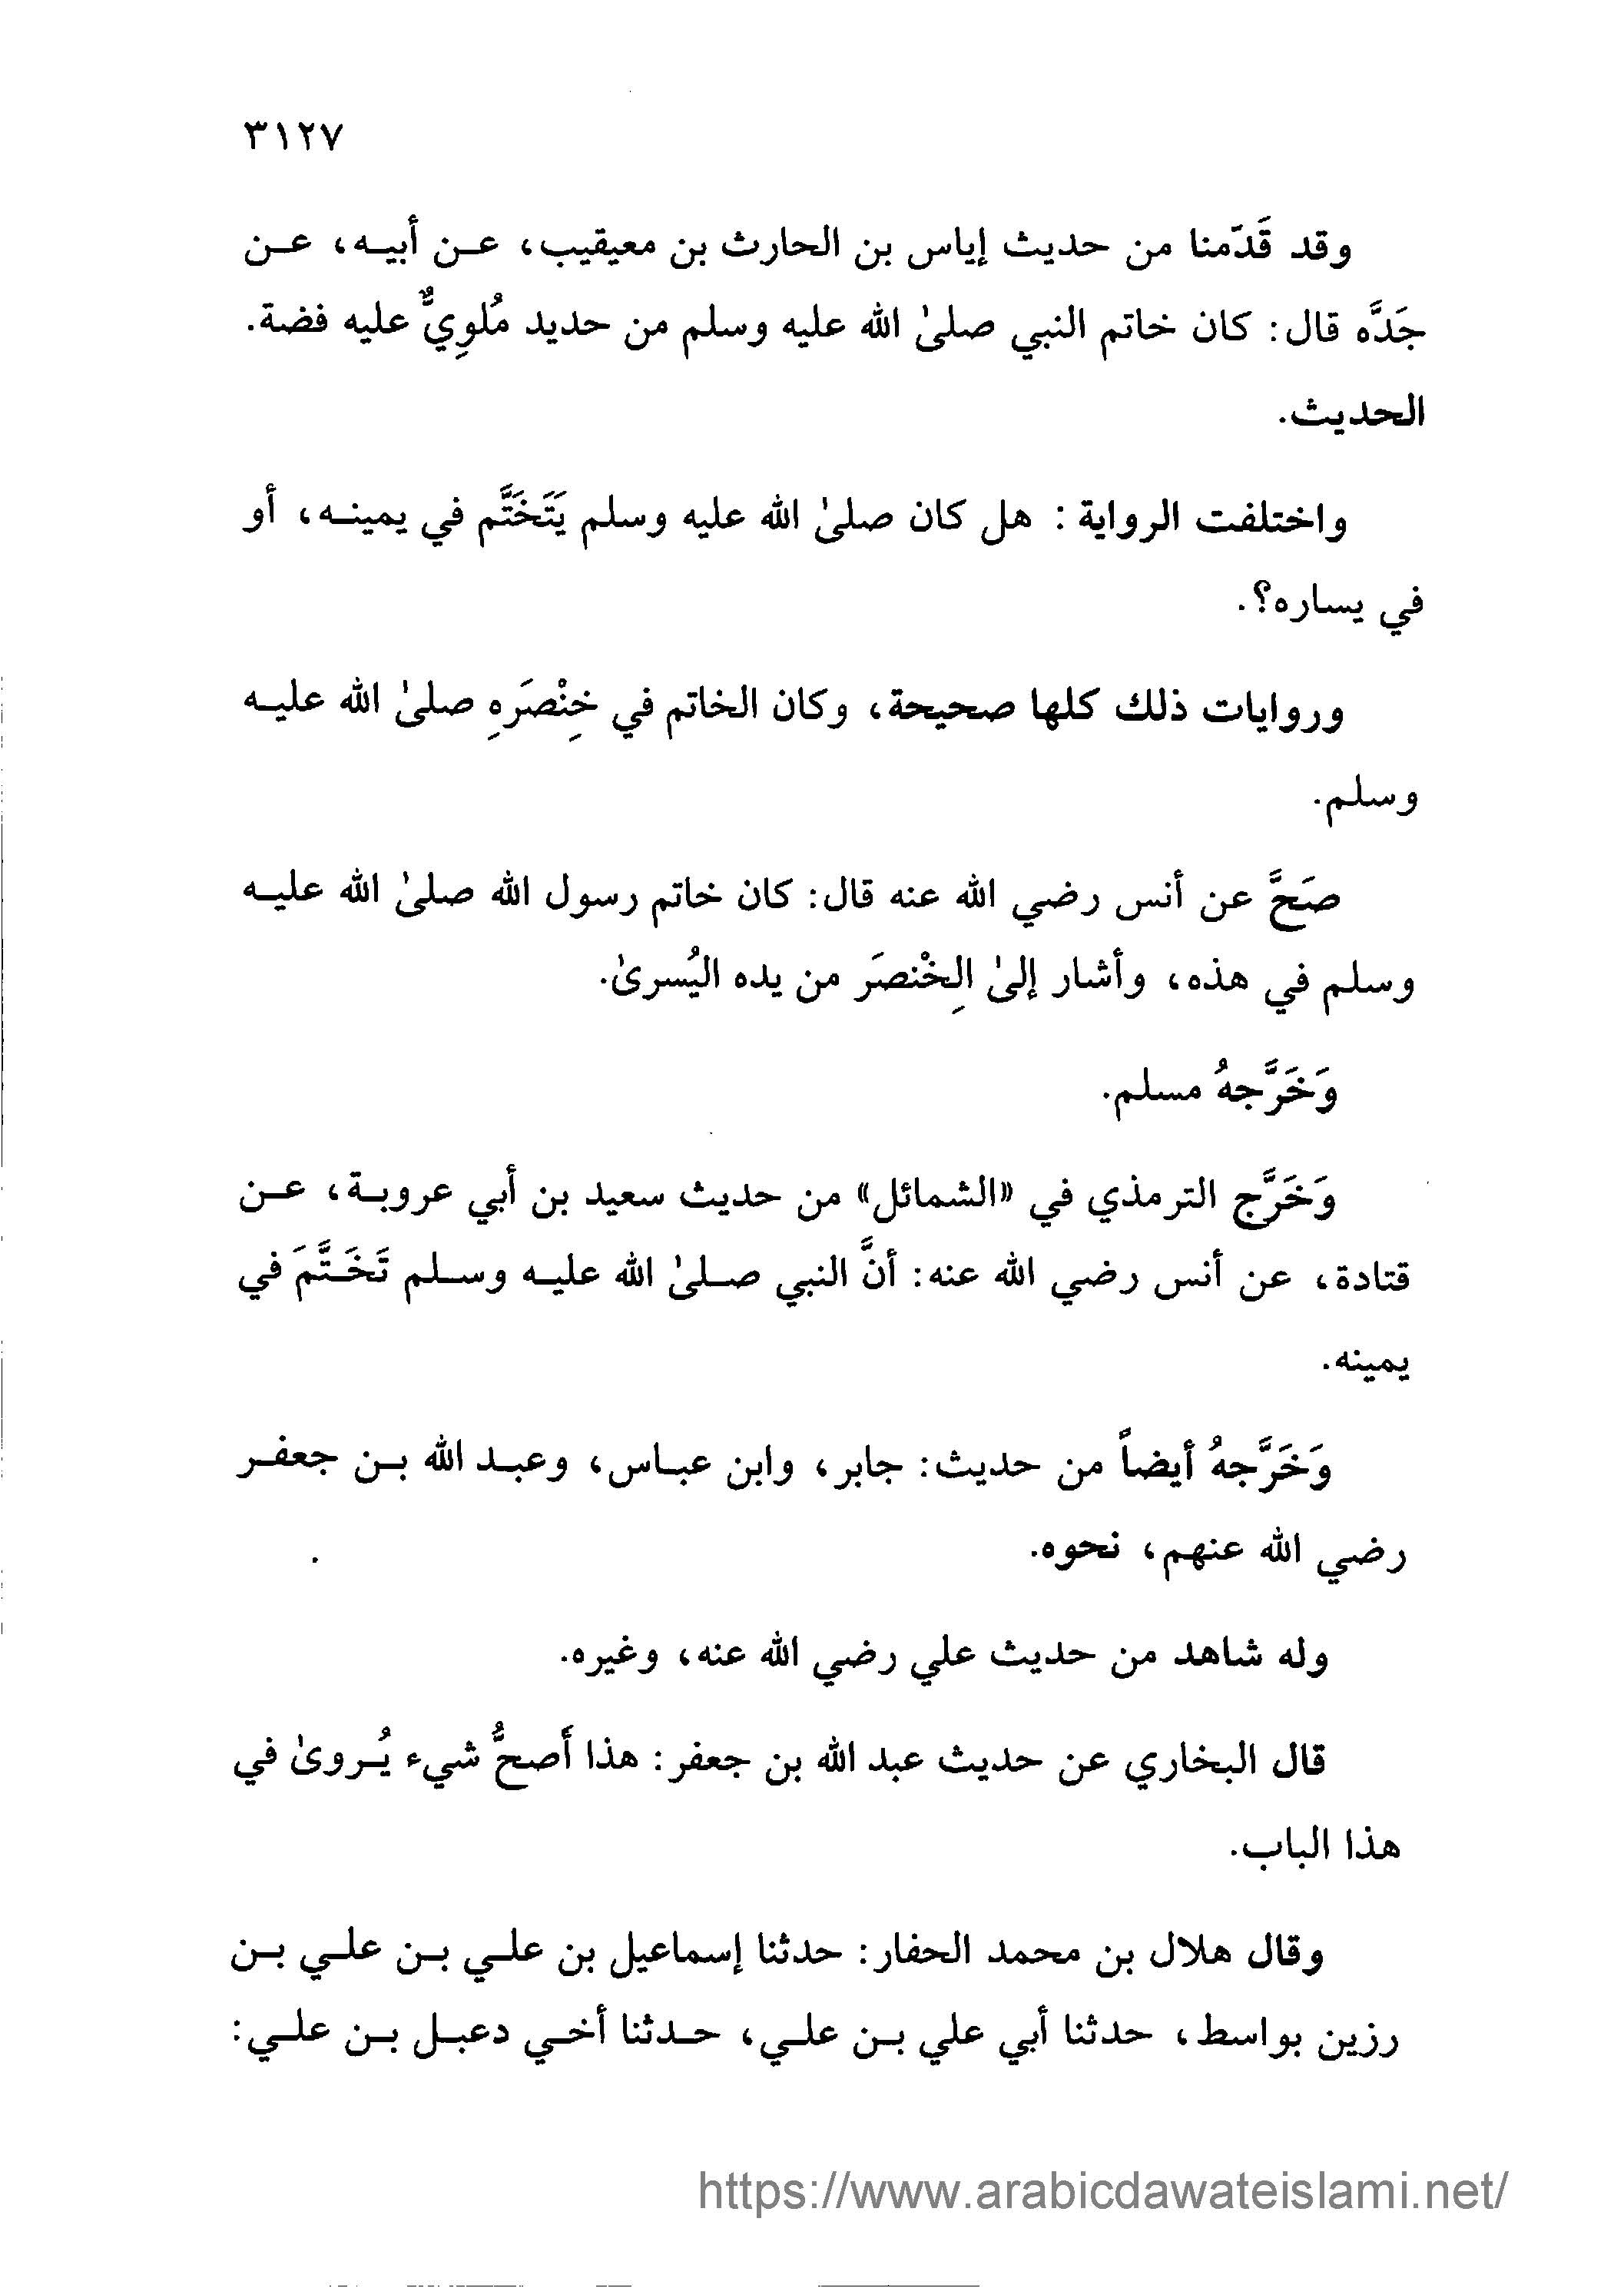 ٣١٢٧
وقد قَدّمنا من حديث إياس بن الحارث بن معيقيب، عن أبيه، عن
جَدَّه قال: كان خاتم النبي صلىٰ الله عليه وسلم من حديد مُلوِيٌّ عليه فضة.
الحديث.
واختلفت الرواية : هل كان صلىٰ الله عليه وسلم يَتَخَتَّم في يمينه، أو
في يساره؟.
وروايات ذلك كلها صحيحة، وكان الخاتم في خِنْصَرِهِ صلىٰ الله عليه
وسلم.
صَحَّ عن أنس رضي الله عنه قال: كان خاتم رسول الله صلىٰ الله عليه
وسلم في هذه، وأشار إلىٰ الخِنْصَر من يده اليُسرىٰ.
وَخَرَّجهُ مسلم.
وَخَرَّج الترمذي في «الشمائل» من حديث سعيد بن أبي عروبة، عن
قتادة، عن أنس رضي الله عنه: أنَّ النبي صلىٰ الله عليه وسلم تَخَتَّمَ في
يمينه.
وَخَرَّجهُ أيضاً من حديث: جابر، وابن عباس، وعبد الله بن جعفر
رضي الله عنهم، نحوه.
وله شاهد من حديث علي رضي الله عنه، وغيره.
قال البخاري عن حديث عبد الله بن جعفر: هذا أصحُّ شيء يُروىٰ في
هذا الباب.
وقال هلال بن محمد الحفار: حدثنا إسماعيل بن علي بن علي بن
رزين بواسط، حدثنا أبي علي بن علي، حدثنا أخي دعبل بن علي:
https://www.arabicdawateislami.net/